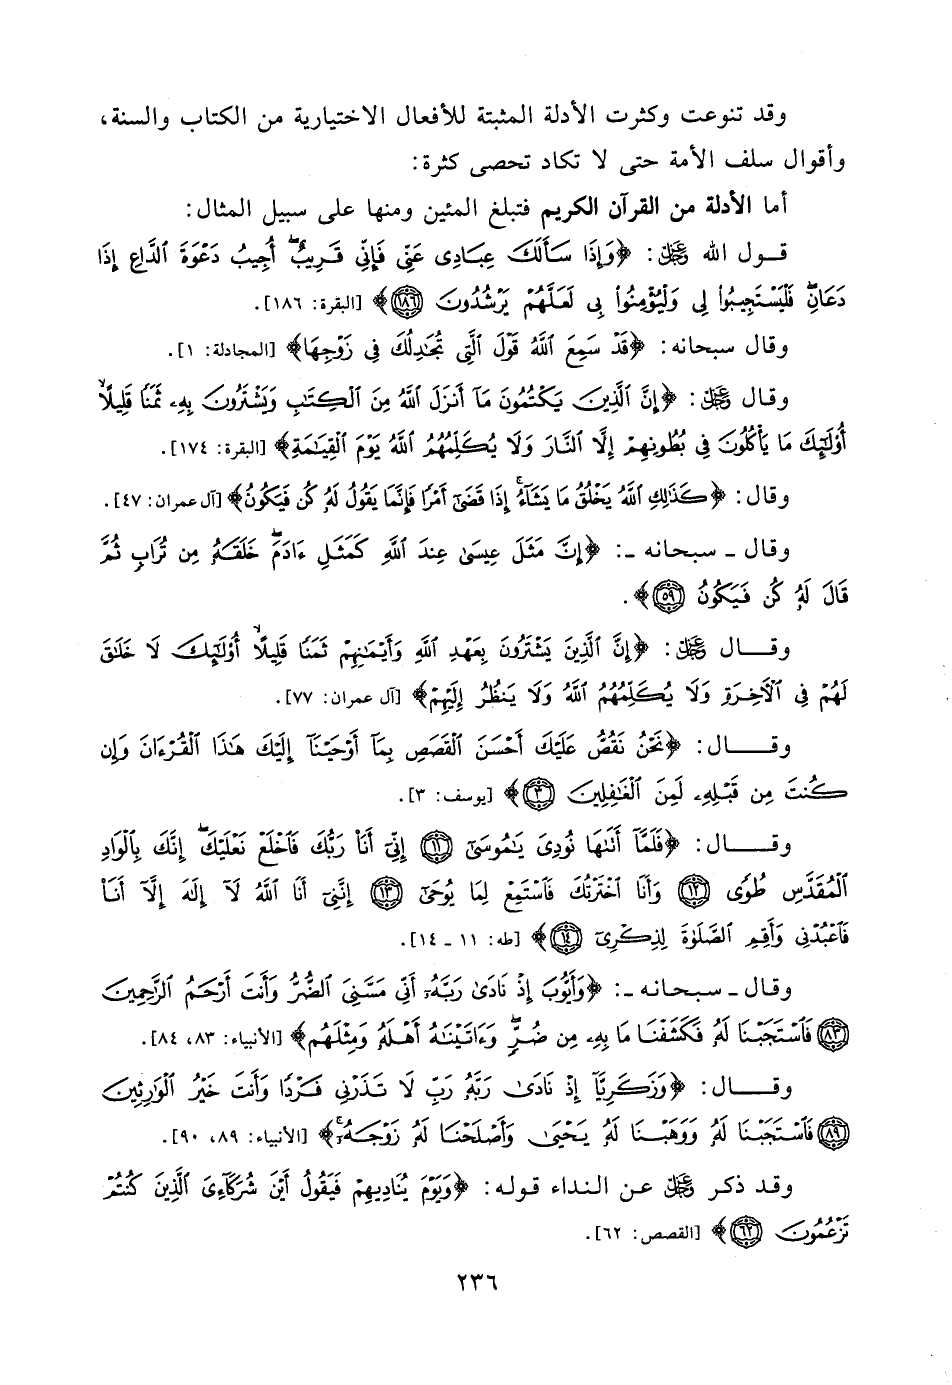 وقد تنوعت وكثرت الأدلة المثبتة للأفعال الاختيارية من الكتاب والسنة،
وأقوال سلف الأمة حتى لا تكاد تحصى كثرة:
أما الأدلة من القرآن الكريم فتبلغ المئين ومنها على سبيل المثال:
قول الله ﷻ: ﴿وَإِذَا سَأَلَكَ عِبَادِى عَنِّى فَإِنِّى قَرِيبٌ ۖ أُجِيبُ دَعْوَةَ ٱلدَّاعِ إِذَا
دَعَانِ ۖ فَلْيَسْتَجِيبُوا۟ لِى وَلْيُؤْمِنُوا۟ بِى لَعَلَّهُمْ يَرْشُدُونَ ۝١٨٦﴾ [البقرة: ١٨٦].
وقال سبحانه: ﴿قَدْ سَمِعَ ٱللَّهُ قَوْلَ ٱلَّتِى تُجَـٰدِلُكَ فِى زَوْجِهَا﴾ [المجادلة: ١].
وقال ﷻ: ﴿إِنَّ ٱلَّذِينَ يَكْتُمُونَ مَآ أَنزَلَ ٱللَّهُ مِنَ ٱلْكِتَـٰبِ وَيَشْتَرُونَ بِهِۦ ثَمَنًا قَلِيلًا ۙ
أُو۟لَـٰٓئِكَ مَا يَأْكُلُونَ فِى بُطُونِهِمْ إِلَّا ٱلنَّارَ وَلَا يُكَلِّمُهُمُ ٱللَّهُ يَوْمَ ٱلْقِيَـٰمَةِ﴾ [البقرة: ١٧٤].
وقال: ﴿كَذَٰلِكِ ٱللَّهُ يَخْلُقُ مَا يَشَآءُ ۚ إِذَا قَضَىٰٓ أَمْرًا فَإِنَّمَا يَقُولُ لَهُۥ كُن فَيَكُونُ﴾ [آل عمران: ٤٧].
وقال ـ سبحانه ـ: ﴿إِنَّ مَثَلَ عِيسَىٰ عِندَ ٱللَّهِ كَمَثَلِ ءَادَمَ ۖ خَلَقَهُۥ مِن تُرَابٍ ثُمَّ
قَالَ لَهُۥ كُن فَيَكُونُ ۝٥٩﴾.
وقال ﷻ: ﴿إِنَّ ٱلَّذِينَ يَشْتَرُونَ بِعَهْدِ ٱللَّهِ وَأَيْمَـٰنِهِمْ ثَمَنًا قَلِيلًا ۙ أُو۟لَـٰٓئِكَ لَا خَلَـٰقَ
لَهُمْ فِى ٱلْـَٔاخِرَةِ وَلَا يُكَلِّمُهُمُ ٱللَّهُ وَلَا يَنظُرُ إِلَيْهِمْ﴾ [آل عمران: ٧٧].
وقال: ﴿نَحْنُ نَقُصُّ عَلَيْكَ أَحْسَنَ ٱلْقَصَصِ بِمَآ أَوْحَيْنَآ إِلَيْكَ هَـٰذَا ٱلْقُرْءَانَ وَإِن
كُنتَ مِن قَبْلِهِۦ لَمِنَ ٱلْغَـٰفِلِينَ ۝٣﴾ [يوسف: ٣].
وقال: ﴿فَلَمَّآ أَتَىٰهَا نُودِىَ يَـٰمُوسَىٰٓ ۝١١ إِنِّىٓ أَنَا۠ رَبُّكَ فَٱخْلَعْ نَعْلَيْكَ ۖ إِنَّكَ بِٱلْوَادِ
ٱلْمُقَدَّسِ طُوًى ۝١٢ وَأَنَا ٱخْتَرْتُكَ فَٱسْتَمِعْ لِمَا يُوحَىٰٓ ۝١٣ إِنَّنِىٓ أَنَا ٱللَّهُ لَآ إِلَـٰهَ إِلَّآ أَنَا۠
فَٱعْبُدْنِى وَأَقِمِ ٱلصَّلَوٰةَ لِذِكْرِىٓ ۝١٤﴾ [طه: ١١ ـ ١٤].
وقال ـ سبحانه ـ: ﴿وَأَيُّوبَ إِذْ نَادَىٰ رَبَّهُۥٓ أَنِّى مَسَّنِىَ ٱلضُّرُّ وَأَنتَ أَرْحَمُ ٱلرَّٰحِمِينَ
۝٨٣ فَٱسْتَجَبْنَا لَهُۥ فَكَشَفْنَا مَا بِهِۦ مِن ضُرٍّ ۖ وَءَاتَيْنَـٰهُ أَهْلَهُۥ وَمِثْلَهُم﴾ [الأنبياء: ٨٣، ٨٤].
وقال: ﴿وَزَكَرِيَّآ إِذْ نَادَىٰ رَبَّهُۥ رَبِّ لَا تَذَرْنِى فَرْدًا وَأَنتَ خَيْرُ ٱلْوَٰرِثِينَ
۝٨٩ فَٱسْتَجَبْنَا لَهُۥ وَوَهَبْنَا لَهُۥ يَحْيَىٰ وَأَصْلَحْنَا لَهُۥ زَوْجَهُۥٓ ۚ﴾ [الأنبياء: ٨٩، ٩٠].
وقد ذكر ﷻ عن النداء قوله: ﴿وَيَوْمَ يُنَادِيهِمْ فَيَقُولُ أَيْنَ شُرَكَآءِىَ ٱلَّذِينَ كُنتُمْ
تَزْعُمُونَ ۝٦٢﴾ [القصص: ٦٢].
٢٣٦